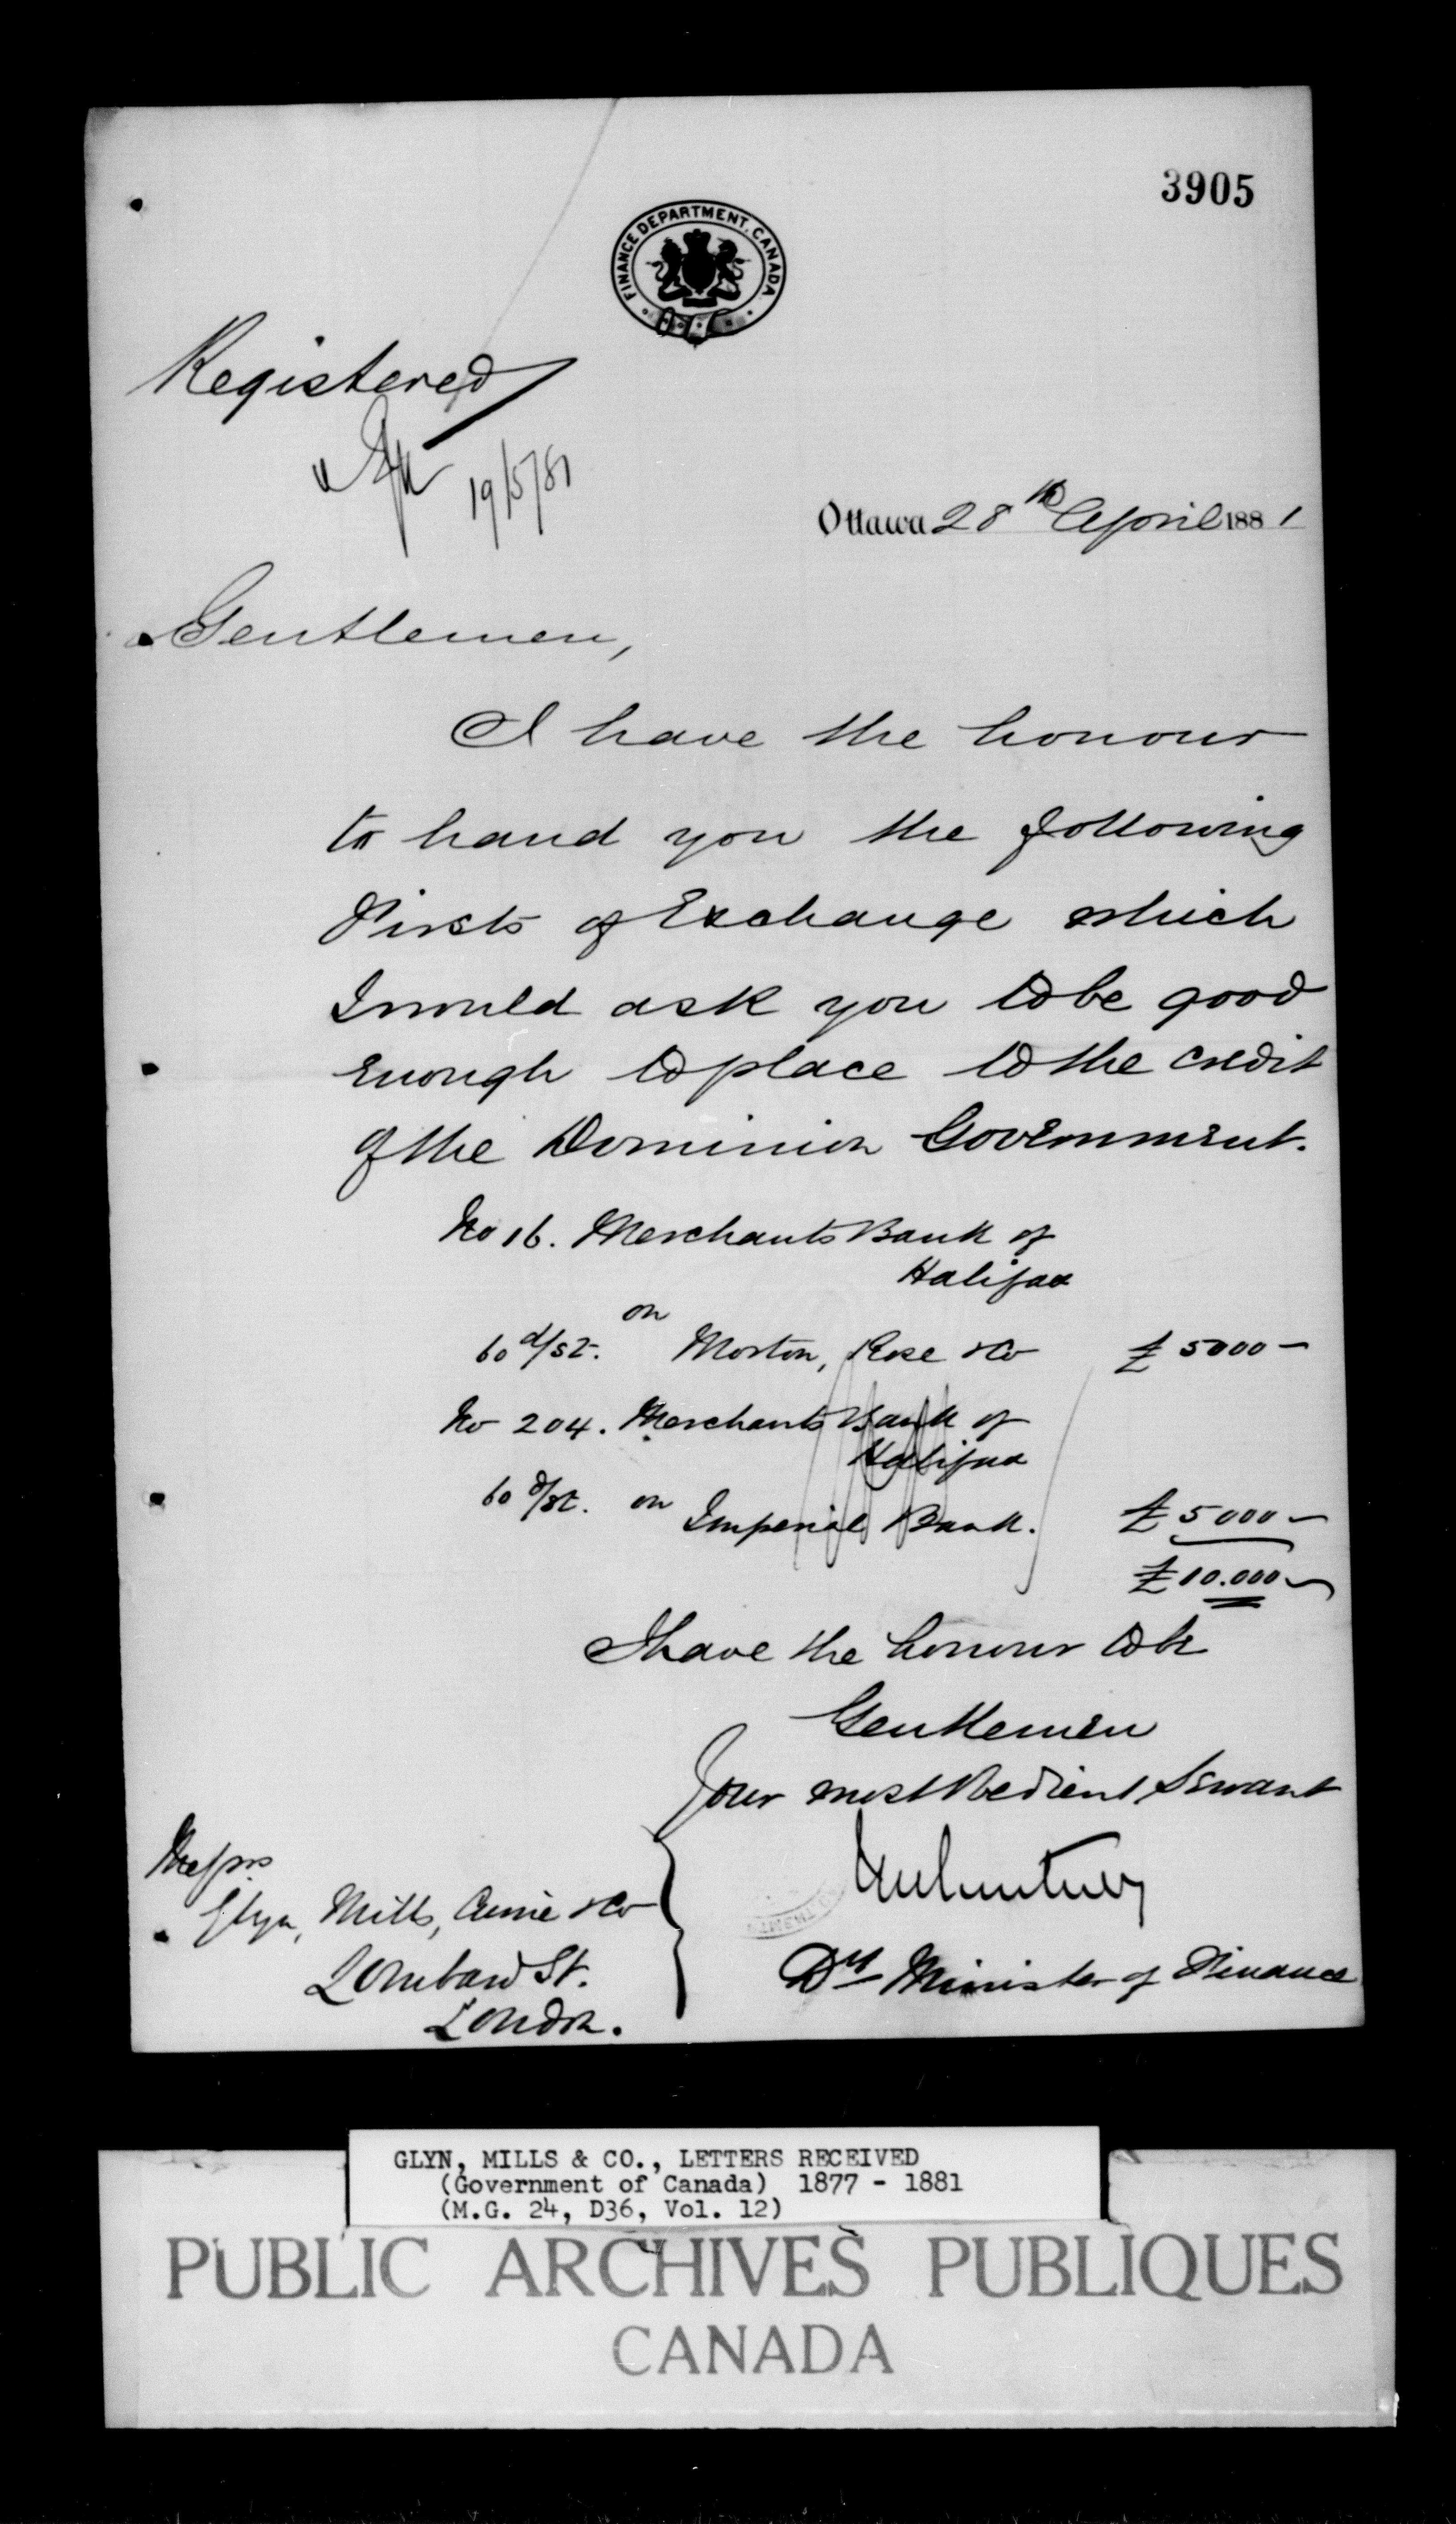 3905
FINANCE DEPARTMENT. CANADA
Registered
19/5/81
Ottawa 28th April 1881
Gentlemen,
I have the honour
to hand you the following
Firsts of Exchange which
I would ask you to be good
enough to place to the credit
of the Dominion Government.
No 16. Merchants Bank of
Halifax
on
60 d/st. Morton, Rose & Co £ 5000 -
No 204. Merchants Bank of
Halifax
60 d/st. on Imperial Bank. £ 5000 -
£ 10.000 -
I have the honour to be
Gentlemen
Your most Obedient Servant
Messrs
Glyn, Mills, Currie & Co
Lombard St.
London.
Dy Minister of Finance
GLYN, MILLS & CO., LETTERS RECEIVED
(Government of Canada) 1877 - 1881
(M.G. 24, D36, Vol. 12)
PUBLIC ARCHIVES PUBLIQUES
CANADA